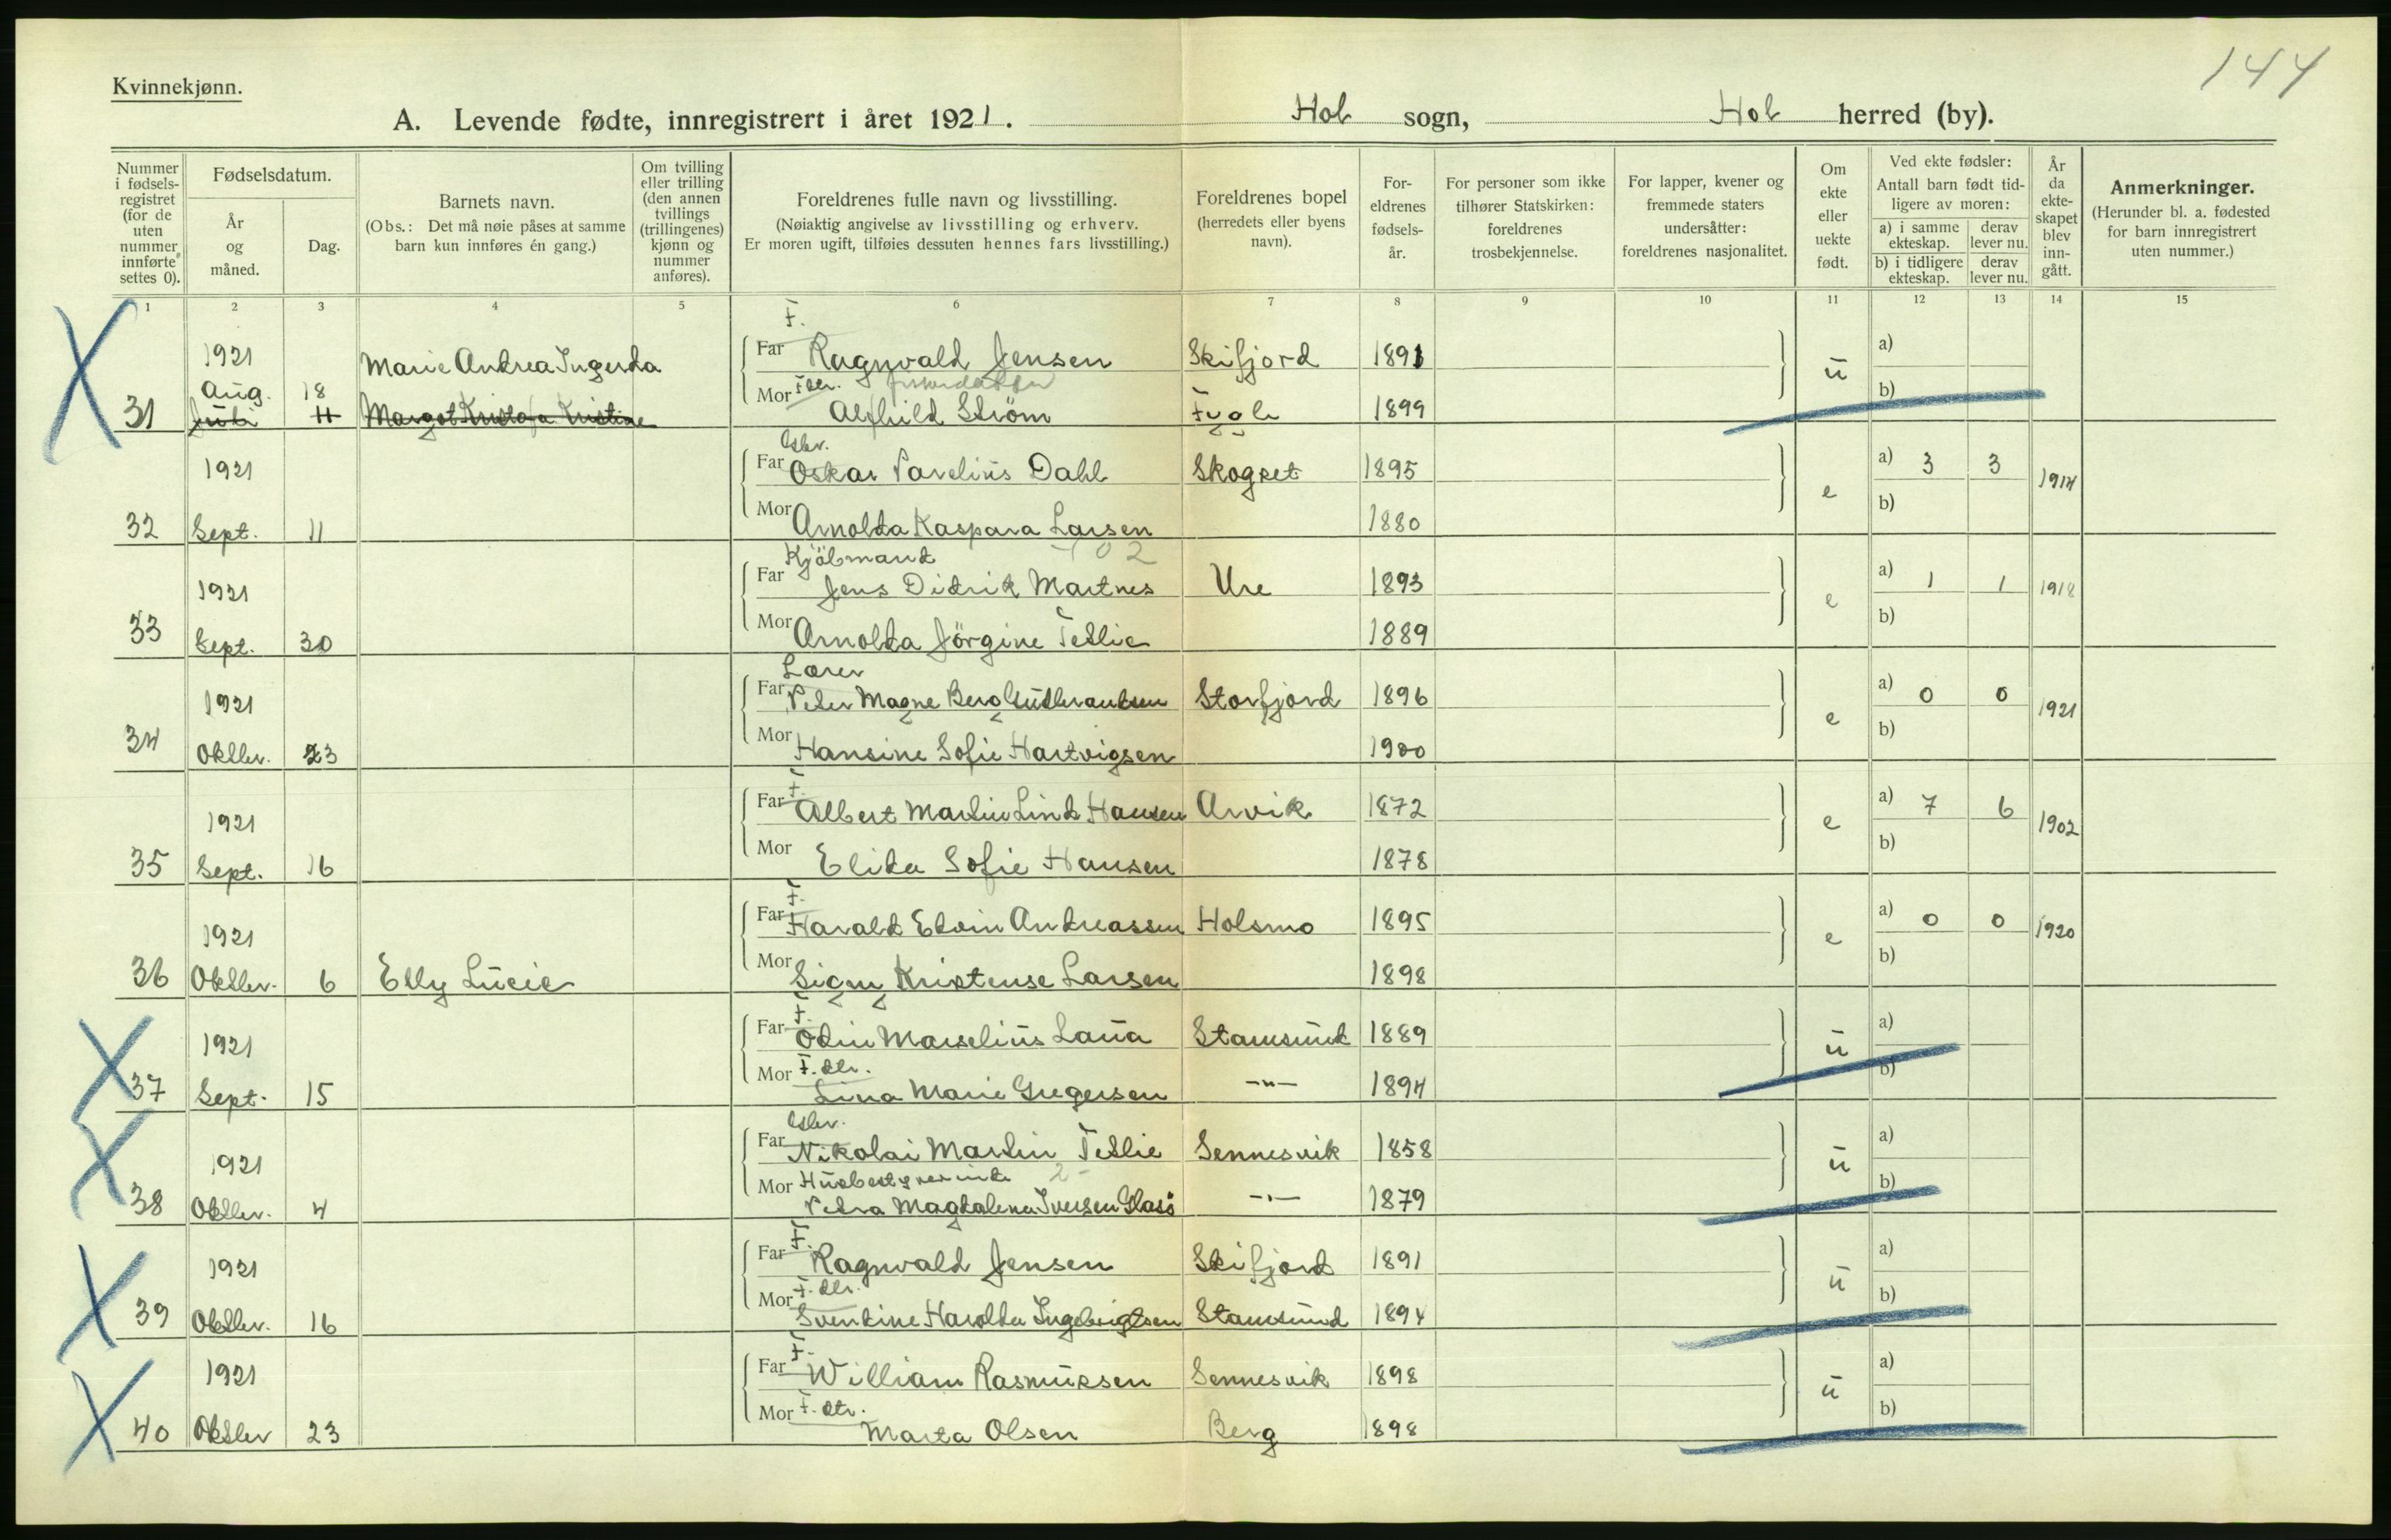 144
Kvinnekjønn.
A. Levende fødte, innregistrert i året 1921. Hol sogn, Hol herred (by).
Nummer i fødsels-registret (for de uten nummer innførte settes 0).
Fødselsdatum.
År og måned.
Dag.
Barnets navn.
(Obs.: Det må nøie påses at samme barn kun innføres én gang.)
Om tvilling eller trilling (den annen tvillings (trillingenes) kjønn og nummer anføres).
Foreldrenes fulle navn og livsstilling.
(Nøiaktig angivelse av livsstilling og erhverv.
Er moren ugift, tilføies dessuten hennes fars livsstilling.)
Foreldrenes bopel (herredets eller byens navn).
For-eldrenes fødsels-år.
For personer som ikke tilhører Statskirken: foreldrenes trosbekjennelse.
For lapper, kvener og fremmede staters undersåtter: foreldrenes nasjonalitet.
Om ekte eller uekte født.
Ved ekte fødsler: Antall barn født tid-ligere av moren:
a) i samme ekteskap. derav lever nu.
b) i tidligere ekteskap. derav lever nu.
År da ekte-skapet blev inn-gått.
Anmerkninger.
(Herunder bl. a. fødested for barn innregistrert uten nummer.)
1 2 3 4 5 6 7 8 9 10 11 12 13 14 15
F.
1921 Marie Andrea Ingerda Far Ragnvald Jensen Skifjord 1891 ü a)
Aug. 18 Mor F.dtr. b)
31 Juli 11 Margot Kristofa Kristine Alfhild Strøm Fygle 1899
Gbr.
1921 Far Oskar Parelius Dahl Skogset 1895 e a) 3 3 1914
32 Sept. 11 Mor Arnolda Kaspara Larsen 1880 b)
Kjöbmand 102
1921 Far Jens Didrik Martnes Ure 1893 e a) 1 1 1918
33 Sept. 30 Mor Arnolda Jörgine Tetlie 1889 b)
Lærer
1921 Far Peter Magne Berg Gulbrandsen Storfjord 1896 e a) 0 0 1921
34 Oktbr. 23 Mor Hansine Sofie Hartvigsen 1900 b)
F.
1921 Far Albert Martin Lind Hansen Arvik 1872 e a) 7 6 1902
35 Sept. 16 Mor Elida Sofie Hansen 1878 b)
F.
1921 Far Harald Edvin Andreassen Holsmo 1895 e a) 0 0 1920
36 Oktbr. 6 Elly Lucie Mor Signy Kristense Larsen 1898 b)
F.
1921 Far Odin Marselius Laua Stamsund 1889 ü a)
Mor F. dtr. b)
37 Sept. 15 Lina Marie Gregersen -"- 1894
Gbr.
1921 Far Nikolai Martin Tetlie Sennesvik 1858 ü a)
Mor Husbestyrerinde 2 - b)
38 Oktbr. 4 Petra Magdalena Iversen Glasö -"- 1879
F.
1921 Far Ragnvald Jensen Skifjord 1891 ü a)
Mor F. dtr. b)
39 Oktbr. 16 Svendine Harolda Ingebrigtsen Stamsund 1894
F.
1921 Far William Rasmussen Sennesvik 1898 ü a)
Mor F. dtr. b)
40 Oktbr 23 Marta Olsen Berg 1898